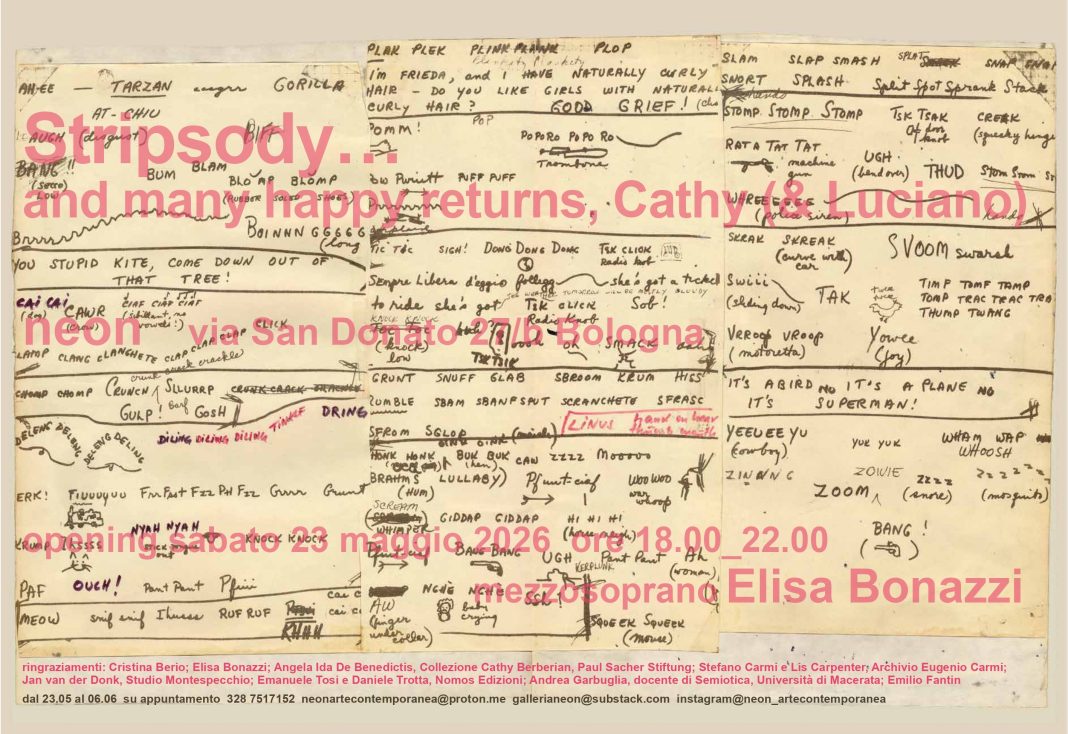 AH-EE — TARZAN GORILLA
AT-CHIU
(disgust) BIFF
BANG!!
(secco)
LOW
BUM BLAM
BLOMP
(RUBBER SOLED SHOES)
BOINNNGGGGGG
(long
YOU STUPID KITE, COME DOWN OUT OF
THAT TREE!
CAI CAI
(dog) CAWR
(crow) CIAF CIAF CIAF
CLAP CLAP CLAP CLICK
CLANG CLANGHETE
crunk crack crackle
CHOMP CHOMP CRUNCH SLLURRP
GULP! Barf GOSH
DILING DILING DILING TINKLE DRING
DELENG DELENG
ERK!
NYAH NYAH
KNOCK KNOCK
PAF OUCH! Pant Pant
MEOW snif snif RUF RUF
KHHH
PLAK PLEK PLINK PLANK PLOP
I'M FRIEDA, and I HAVE NATURALLY CURLY
HAIR - DO YOU LIKE GIRLS WITH NATURALL
CURLY HAIR? GOOD GRIEF!
POMM! POP
POPORO POPO RO
Trombone
PUFF PUFF
TIC TOC SIGH! DONG DONG DONG TSK CLICK
Radio Knob
Sempre Libera
she's got a ticket
to ride she's got CLICK Sob!
Radio Knob
KNOCK KNOCK
TOC TOC
(knock)
low SMACK
GRUNT SNUFF GLAB SBROOM KRUM HISS
RUMBLE SBAM SBANF SPUT SCRANCHETE SFRASC
LINUS
SFROM SGLOP OINK OINK
HONK HONK BUK BUK CAW ZZZZ MOOOOO
(hen)
BRAHMS LULLABY)
(HUM) WOO WOO
war
whoop
SCREAM
WHIMPER GIDDAP GIDDAP HI HI HI
(horse neigh)
BANG BANG UGH Pant Pant Ah
KERPLUNK (woman)
AW NGHE NGHE SSH!
(finger
under
collar) baby
crying
SQUEEK SQUEEK
(mouse)
SLAM SLAP SMASH SPLAT SNAP
SNORT SPLASH Split Spot Sprank Stack
STOMP STOMP STOMP TSK TSAK CREEK
Of door
knob (squeaky hinge
RATA TAT TAT
machine
gun UGH
(bend over) THUD
(police siren)
SKRAK SKREAK
(curve with
car SVOOM swarsh
SWIII
(sliding down) TAK TIMP TOMF TAMP
TOMP TRAC TRAC TRA
THUMP TWANG
VRROOP VROOP
(motoretta) YOWEE
(joy)
IT'S A BIRD NO IT'S A PLANE NO
IT'S SUPERMAN!
YEEUEE YU
(cowboy) YUK YUK WHAM WAP
WHOOSH
ZINNNG ZOWIE
ZOOM zzzz
(snore) zzzzzz
(mosquito)
BANG!
Stripsody...
and many happy returns, Cathy (& Luciano)
neon via San Donato 27/b Bologna
opening sabato 23 maggio 2026 ore 18.00_22.00
mezzosoprano Elisa Bonazzi
ringraziamenti: Cristina Berio; Elisa Bonazzi; Angela Ida De Benedictis, Collezione Cathy Berberian, Paul Sacher Stiftung; Stefano Carmi e Lis Carpenter, Archivio Eugenio Carmi;
Jan van der Donk, Studio Montespecchio; Emanuele Tosi e Daniele Trotta, Nomos Edizioni; Andrea Garbuglia, docente di Semiotica, Università di Macerata; Emilio Fantin
dal 23.05 al 06.06 su appuntamento 328 7517152 neonartecontemporanea@proton.me gallerianeon@substack.com instagram@neon_artecontemporanea